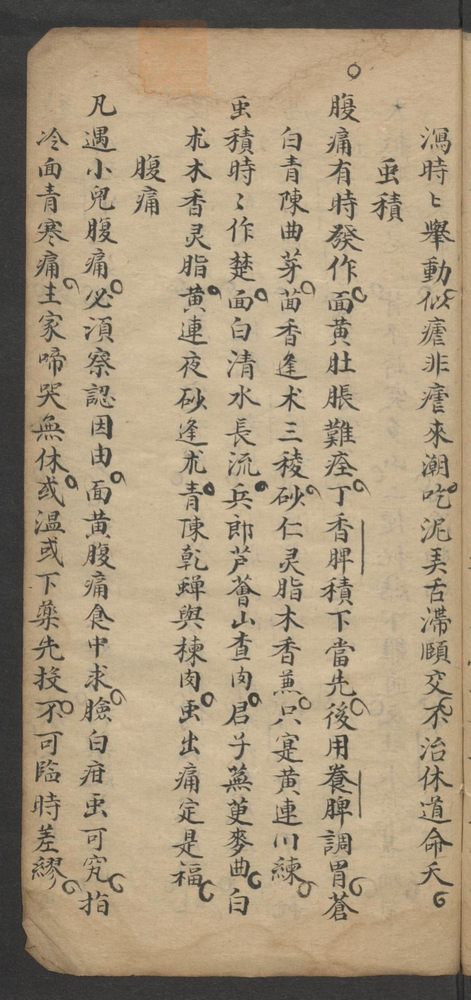 瀉時〻舉動似瘧非瘧來潮吃泥弄舌滯頤交不治休道命夭
虫積
腹痛有時發作面黄肚脹難痊丁香脾積下當先後用養脾調胃蒼
白青陳曲芽茴香逢术三稜砂仁灵脂木香煎只寔黄連川練
虫積時〻作楚面白清水長流兵郎芦薈山查肉君子蕪荑麥曲白
朮木香灵脂黄連夜砂逢朮青陳乾蟬與楝肉虫出痛定是福
腹痛
凡遇小兒腹痛必須察認因由面黄腹痛食中求臉白疳虫可究指
冷面青寒痛主家啼哭無休或温或下藥先投不可臨時差繆